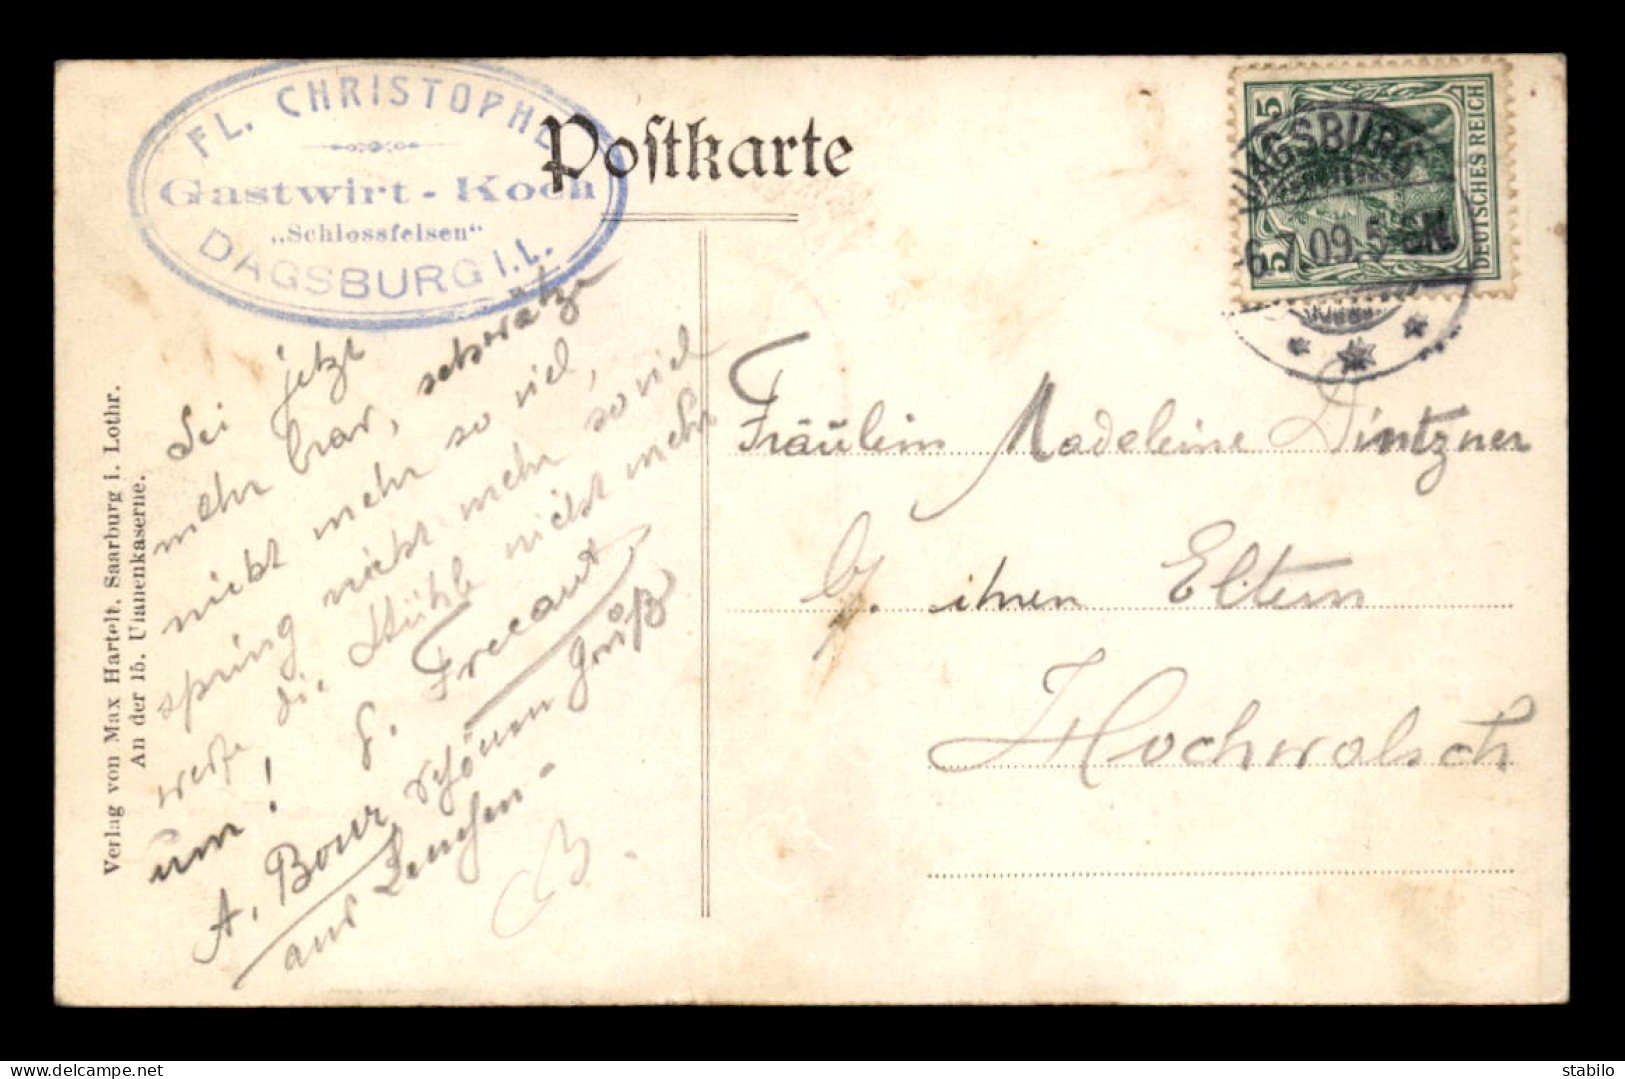 FL. CHRISTOPHE
Gastwirt - Koch
„Schlossfelsen“
DAGSBURG i. L.
Postkarte
5
5
DEUTSCHES REICH
DAGSBURG
6.7.09. 5-6N
Sei jetzt
mehr brav, schwätze
nicht mehr so viel,
spring nicht mehr so viel
werfe die Stühle nicht mehr
um!
A. Bour schönen Gruß
aus
Fräulein Madeleine Dintzner
b/. ihren Eltern
Hochwalsch
Verlag von Max Hartelt, Saarburg i. Lothr.
An der 15. Ulanenkaserne.